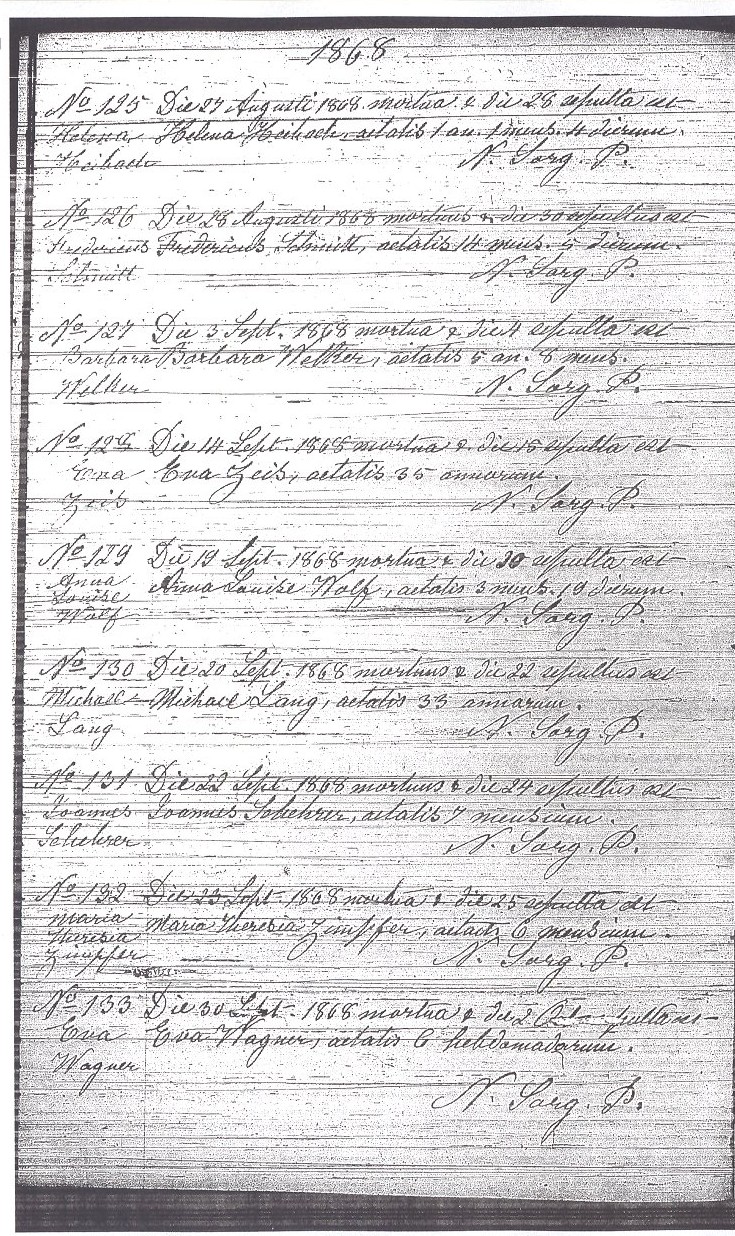 1868
No 125 Die 27 Augusti 1868 mortua & die 28 sepulta est
Helena Helena Heibach, aetatis 1 an. 1 mens. 4 dierum.
Heibach N. Sorg. P.
No 126 Die 28 Augusti 1868 mortuus & die 30 sepultus est
Fredericus Fredericus Schmitt, aetatis 14 mens. 5 dierum.
Schmitt N. Sorg. P.
No 127 Die 3 Sept. 1868 mortua & die 4 sepulta est
Barbara Barbara Welker, aetatis 5 an. 8 mens.
Welker N. Sorg. P.
No 128 Die 14 Sept. 1868 mortua & die 15 sepulta est
Eva Eva Zeis, aetatis 35 annorum.
Zeis N. Sorg. P.
No 129 Die 19 Sept. 1868 mortua & die 20 sepulta est
Anna Anna Louise Wolf, aetatis 3 mens. 19 dierum.
Louise
Wolf N. Sorg. P.
No 130 Die 20 Sept. 1868 mortuus & die 22 sepultus est
Michael Michael Lang, aetatis 33 annorum.
Lang N. Sorg. P.
No 131 Die 22 Sept. 1868 mortuus & die 24 sepultus est
Joannes Joannes Schehrer, aetatis 7 mensium.
Schehrer N. Sorg. P.
No 132 Die 23 Sept. 1868 mortua & die 25 sepulta est
Maria Maria Theresia Zimpfer, aetatis 6 mensium.
Theresia
Zimpfer N. Sorg. P.
No 133 Die 30 Sept. 1868 mortua & die 2 sepulta est
Eva Eva Wagner, aetatis 6 hebdomadarum.
Wagner
N. Sorg. P.